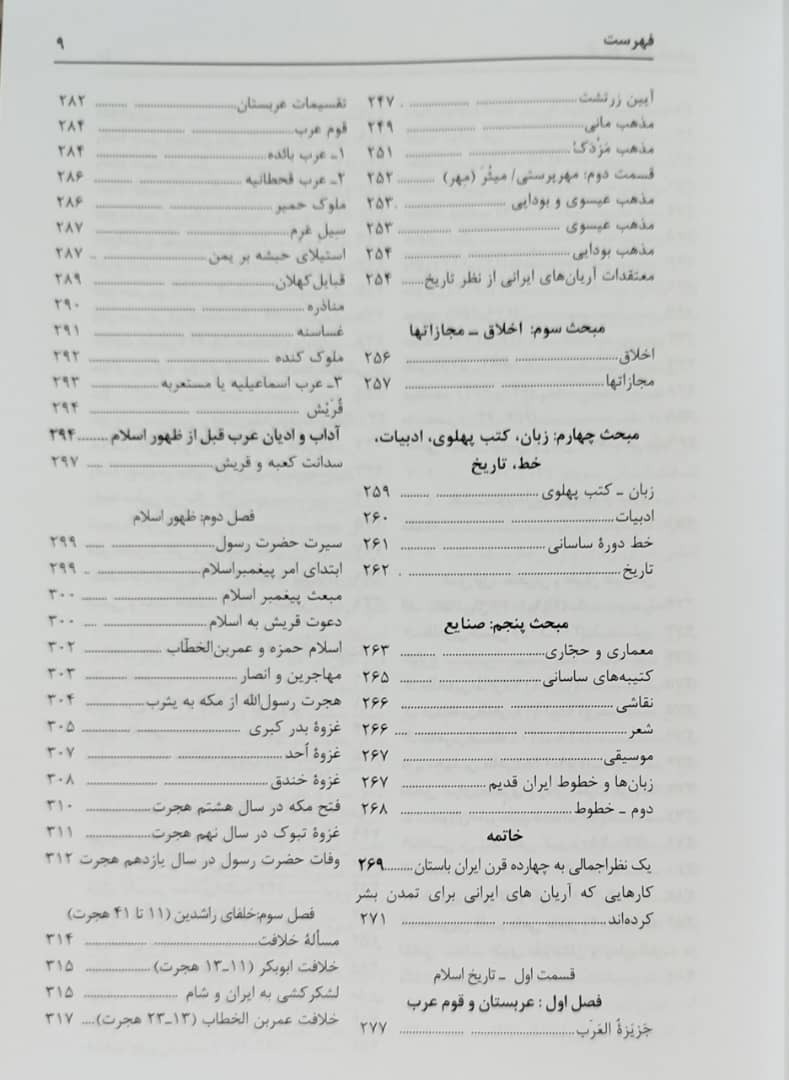 فهرست ۹
آیین زرتشت ........ ۲۴۷
مذهب مانی ........ ۲۴۹
مذهب مَزْدَکْ ........ ۲۵۱
قسمت دوم: مهرپرستی/ میثْرَ (مِهر) ........ ۲۵۲
مذهب عیسوی و بودایی ........ ۲۵۳
مذهب عیسوی ........ ۲۵۳
مذهب بودایی ........ ۲۵۴
معتقدات آریان‌های ایرانی از نظر تاریخ ........ ۲۵۴
مبحث سوم: اخلاق ـ مجازاتها
اخلاق ........ ۲۵۶
مجازاتها ........ ۲۵۷
مبحث چهارم: زبان، کتب پهلوی، ادبیات،
خط، تاریخ
زبان ـ کتب پهلوی ........ ۲۵۹
ادبیات ........ ۲۶۰
خط دورهٔ ساسانی ........ ۲۶۱
تاریخ ........ ۲۶۲
مبحث پنجم: صنایع
معماری و حجّاری ........ ۲۶۳
کتیبه‌های ساسانی ........ ۲۶۵
نقاشی ........ ۲۶۶
شعر ........ ۲۶۶
موسیقی ........ ۲۶۷
زبان‌ها و خطوط ایران قدیم ........ ۲۶۷
دوم ـ خطوط ........ ۲۶۸
خاتمه
یک نظراجمالی به چهارده قرن ایران باستان ........ ۲۶۹
کارهایی که آریان های ایرانی برای تمدن بشر
کرده‌اند ........ ۲۷۱
قسمت اول ـ تاریخ اسلام
فصل اول : عربستان و قوم عرب
جَزیرَةُ العَرَب ........ ۲۷۷
تقسیمات عربستان ........ ۲۸۲
قوم عرب ........ ۲۸۴
۱ـ عرب بائده ........ ۲۸۴
۲ـ عرب قحطانیه ........ ۲۸۶
ملوک حمیر ........ ۲۸۶
سیل عَرِم ........ ۲۸۷
استیلای حبشه بر یمن ........ ۲۸۷
قبایل‌کهلان ........ ۲۸۹
مناذره ........ ۲۹۰
غساسنه ........ ۲۹۱
ملوک کنده ........ ۲۹۲
۳ـ عرب اسماعیلیه یا مستعربه ........ ۲۹۳
قُرَیْش ........ ۲۹۴
آداب و ادیان عرب قبل از ظهور اسلام ........ ۲۹۴
سدانت کعبه و قریش ........ ۲۹۷
فصل دوم: ظهور اسلام
سیرت حضرت رسول ........ ۲۹۹
ابتدای امر پیغمبراسلام ........ ۲۹۹
مبعث پیغمبر اسلام ........ ۳۰۰
دعوت قریش به اسلام ........ ۳۰۰
اسلام حمزه و عمربن‌الخطّاب ........ ۳۰۲
مهاجرین و انصار ........ ۳۰۳
هجرت رسول‌الله از مکه به یثرب ........ ۳۰۴
غزوهٔ بدر کبری ........ ۳۰۵
غزوهٔ اُحد ........ ۳۰۷
غزوهٔ خندق ........ ۳۰۸
فتح مکه در سال هشتم هجرت ........ ۳۱۰
غزوهٔ تبوک در سال نهم هجرت ........ ۳۱۱
وفات حضرت رسول در سال یازدهم هجرت ۳۱۲
فصل سوم:خلفای راشدین (۱۱ تا ۴۱ هجرت)
مسألهٔ خلافت ........ ۳۱۴
خلافت ابوبکر (۱۱ـ۱۳ هجرت) ........ ۳۱۵
لشکرکشی به ایران و شام ........ ۳۱۵
خلافت عمربن الخطاب (۱۳ـ۲۳ هجرت) ........ ۳۱۷